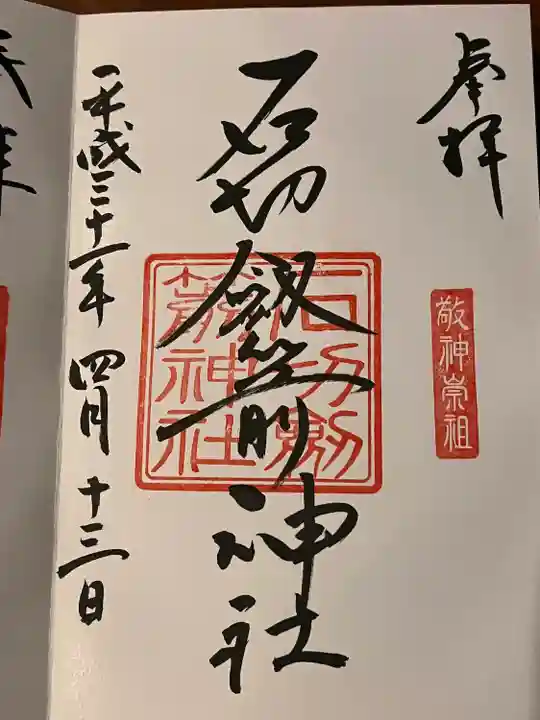 奉拝
敬神崇祖
石切劔箭神社
石切劔
箭神社
平成三十一年四月十三日
拝